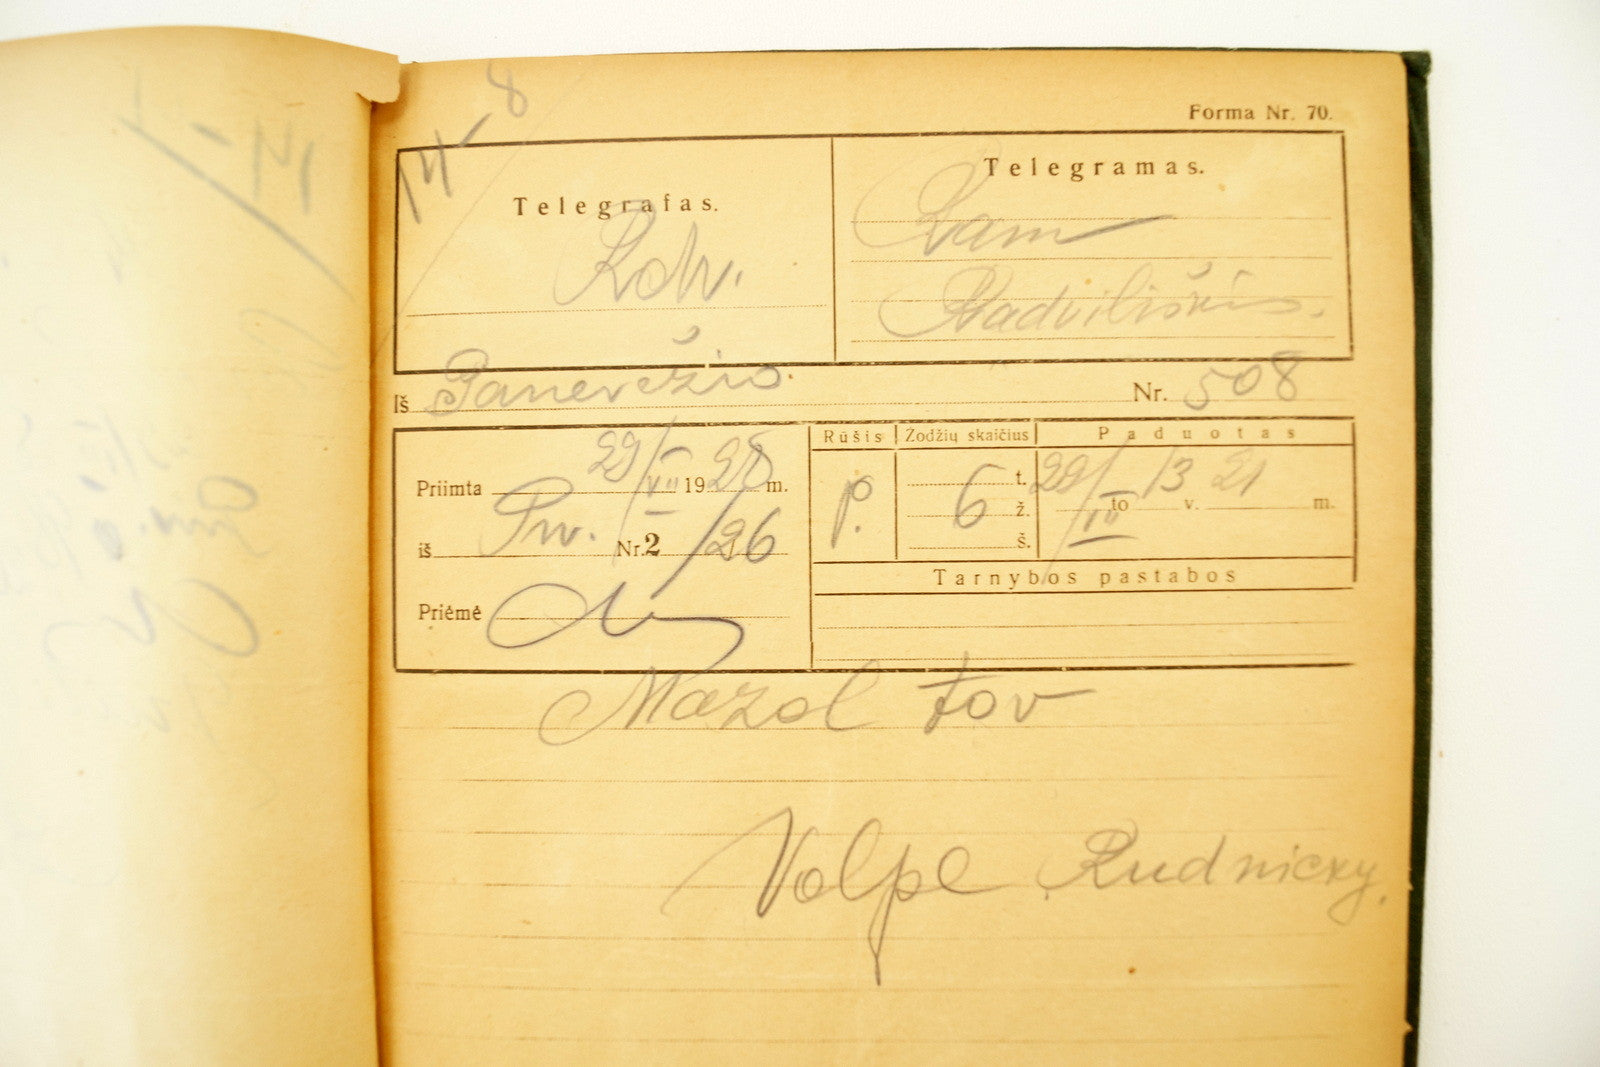 14-8
Forma Nr. 70.
Telegrafas.
Rdv.
Telegramas.
Ram
Radviliškis.
Iš Panevėžio. Nr. 508
Priimta 29/VII 1928 m.
iš Pnv. Nr. 2 /26
Priėmė
Rūšis Žodžių skaičius Paduotas
P. 6 t. ž. š. 29/VII to 13 v. 21 m.
Tarnybos pastabos
Mazol tov
Volpe Rudnicky.